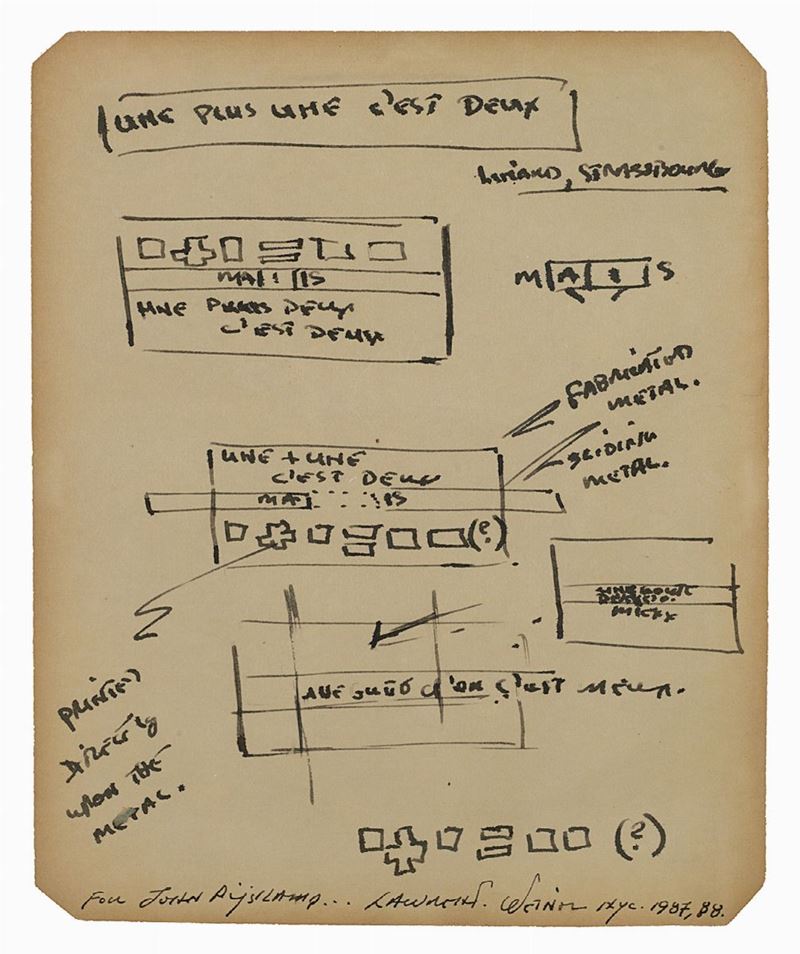 UNE PLUS UNE C'EST DEUX
STRASBOURG
MA I IS
UNE DEUX
C'EST DEUX
M A I S
FABRICATED
METAL.
SLIDING
METAL.
UNE + UNE
C'EST DEUX
MA IS
(?)
C'EST MIEUX.
PRINTED
DIRECTLY
UPON THE
METAL.
(?)
FOR JOHN ... LAWRENCE WEINER NYC. 1987, 88.